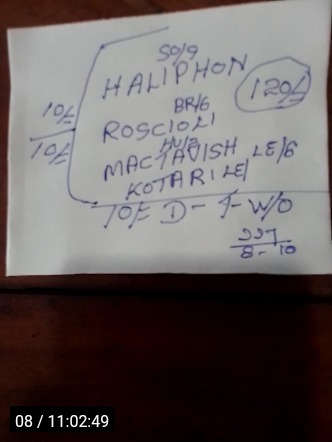 SO/9
HALIPHON
120/-
10/-
10/-
BR/6
ROSCIOLI
HU/2
MACTAVISH LE/6
KOTARI LE/
10/- D - F - W/O
337
8 - 10
08 / 11:02:49